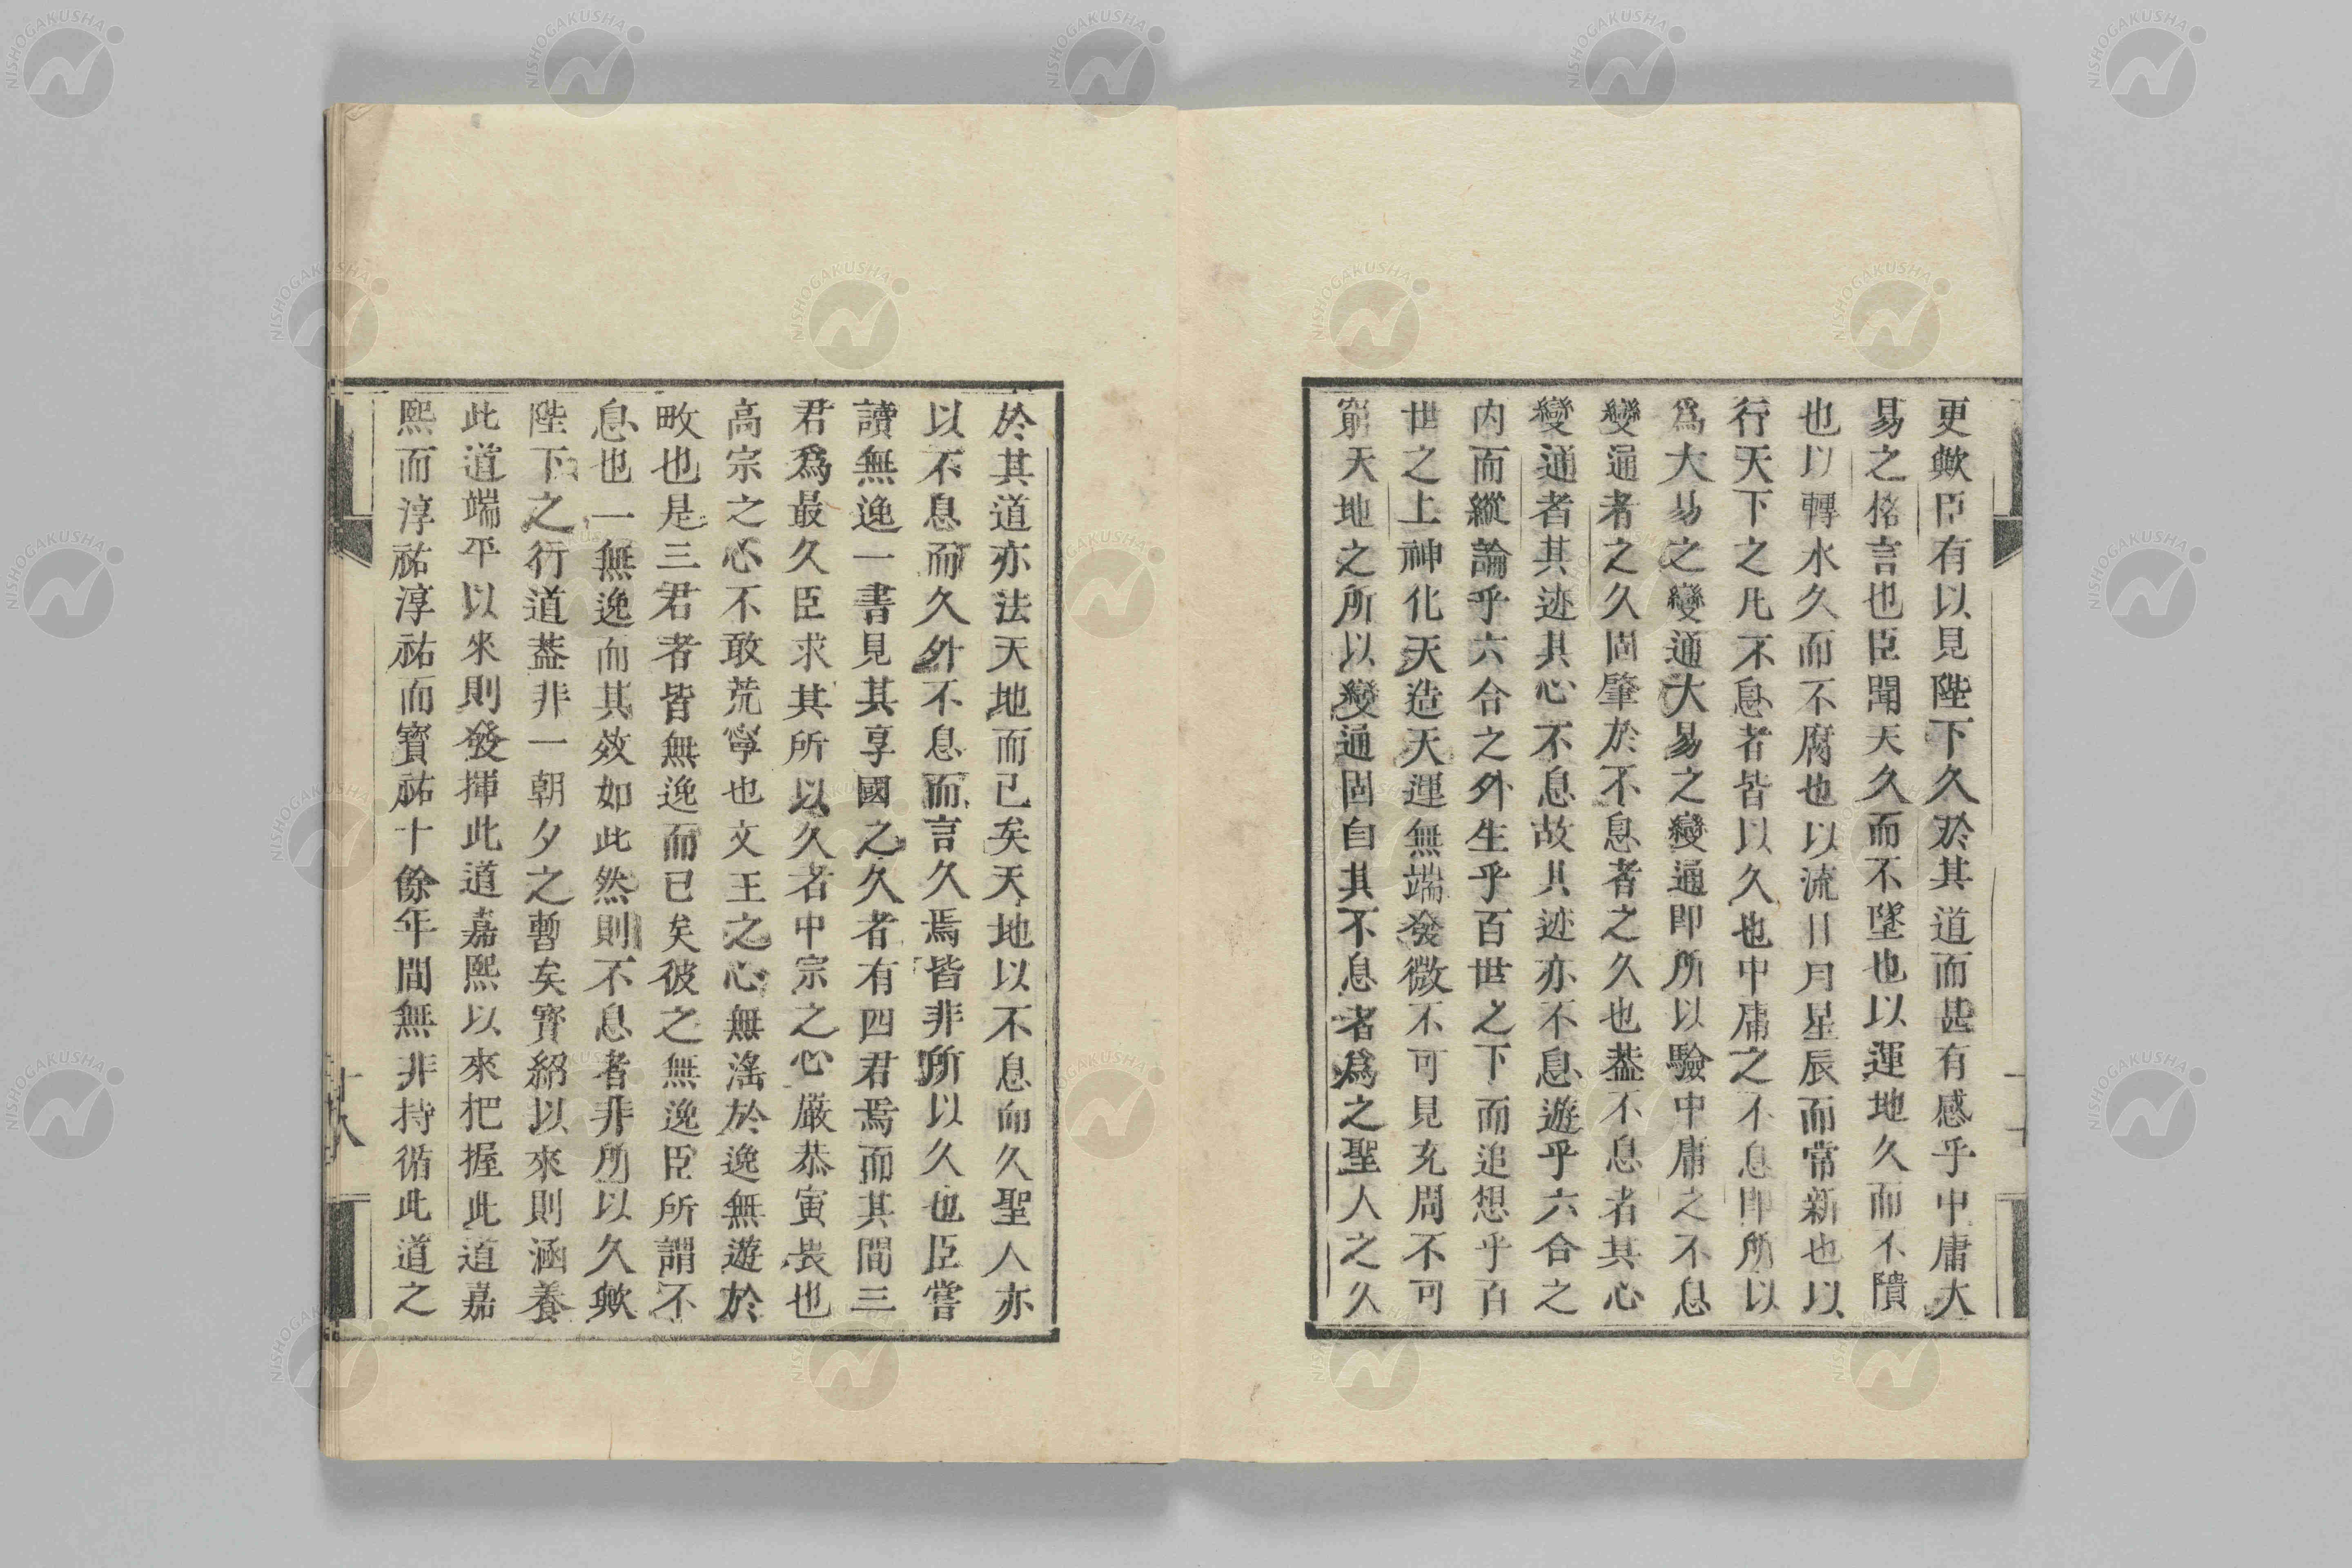 更歟臣有以見陛下久於其道而甚有感乎中庸大
易之格言也臣聞天久而不墜也以運地久而不隤
也以轉水久而不腐也以流日月星辰而常新也以
行天下之凡不息者皆以久也中庸之不息即所以
爲大易之變通大易之變通即所以驗中庸之不息
變通者之久固肇於不息者之久也蓋不息者其心
變通者其迹其心不息故其迹亦不息遊乎六合之
内而縱論乎六合之外生乎百世之下而追想乎百
世之上神化天造天運無端發微不可見充周不可
窮天地之所以變通固自其不息者爲之聖人之久
於其道亦法天地而已矣天地以不息而久聖人亦
以不息而久外不息而言久焉皆非所以久也臣嘗
讀無逸一書見其享國之久者有四君焉而其間三
君爲最久臣求其所以久者中宗之心嚴恭寅畏也
高宗之心不敢荒寧也文王之心無滛於逸無遊於
畋也是三君者皆無逸而已矣彼之無逸臣所謂不
息也一無逸而其效如此然則不息者非所以久歟
陛下之行道蓋非一朝夕之暫矣寳紹以來則涵養
此道端平以來則發揮此道嘉熙以來把握此道嘉
熙而淳祐淳祐而寳祐十餘年間無非持循此道之
NISHOGAKUSHA